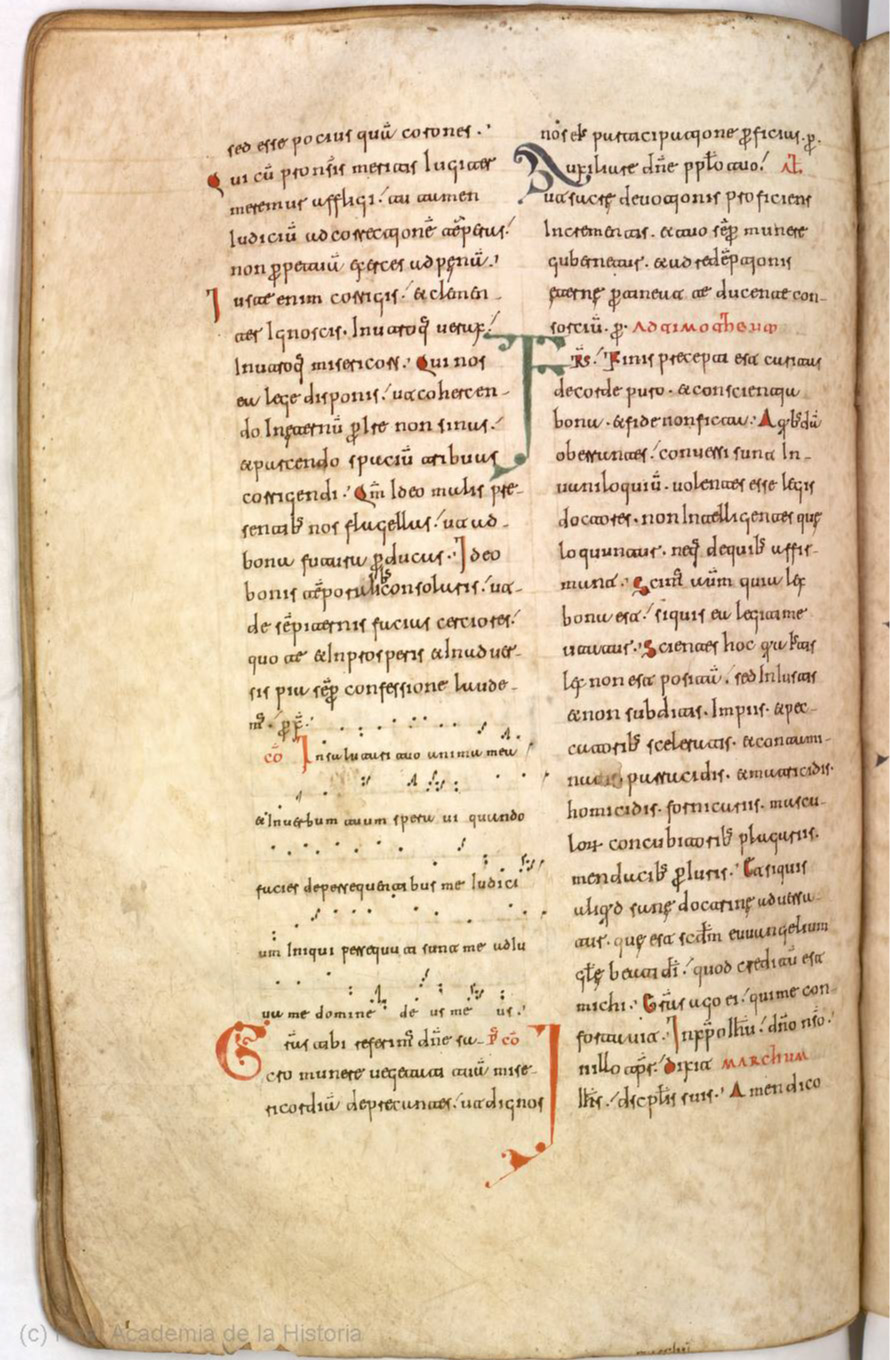 sed esse pocius quã cotones.
Qui cũ pro nr̃is meritis Iugiter
meremur affligi: tu tamen
Iudiciũ ad correctionẽ tẽperas:
non ppetuũ exerces ad penã.
Iuste enim corrigis: & clemen
ter Ignoscis. In utroq uerax:
In utroq misericors. Qui nos
ea lege disponis: ut cohercen
do In eternũ p̃ire non sinas:
& parcendo spaciũ tribuas
corrigendi. Qm̃ Ideo malis pre
sentib nos flagellas: ut ad
bona futura p̃ducas. Ideo
bonis tẽporalib consolaris: ut
de sẽpiternis facias certiores:
quo te & In prosperis & In aduer
sis pia sẽp confessione laude
m̃.
cõ In salutari tuo anima mea
& In uerbum tuum speraui quando
facies de persequentibus me Iudici
um Iniqui persequuti sunt me adIu
ua me domine deus meus.
Grãs tibi referim̃ dñe sa p̃ cõ
cro munere uegetati tuã mise
ricordiã deprecantes: ut dignos
nos ei participatione p̃ficias. p.
Auxiliare dñe pplo tuo: Al
ut sacre deuotionis proficiens
Incrementis. & tuo sẽp munere
gubernetur. & ad redẽptionis
eterne p̃tineat te ducente con
sorciũ. p. AD TIMOTHEUM
Frs: Finis precepti est caritas
de corde puro. & conscientia
bona. & fide non ficta. A qb dã
oberrantes: conuersi sunt In
uaniloquiũ. uolentes esse legis
doctores. non Intelligentes que
loquuntur. neq de quib affir
mant. Scim̃ autm̃ quia lex
bona est: si quis ea legitime
utatur. Scientes hoc quia Iustis
lex non est positã: sed Iniustis
& non subditis. Impiis. & pec
catorib sceleratis. & contami
natis parricidis. & matricidis.
homicidis. fornicariis. mascu
lor concubitorib plagiariis.
mendacib p̃iuris. Et si quis
aliq̃d sane doctrine aduersa
tur. que est scdm̃ euuangelium
gl̃e beati di: quod creditũ est
michi. Grãs ago ei: qui me con
fortauit. In xp̃o Ihũ: dño nr̃o.
In illo tp̃r: Dixit MARCHUM
Ihs: discplis suis. Amen dico
(c) Real Academia de la Historia